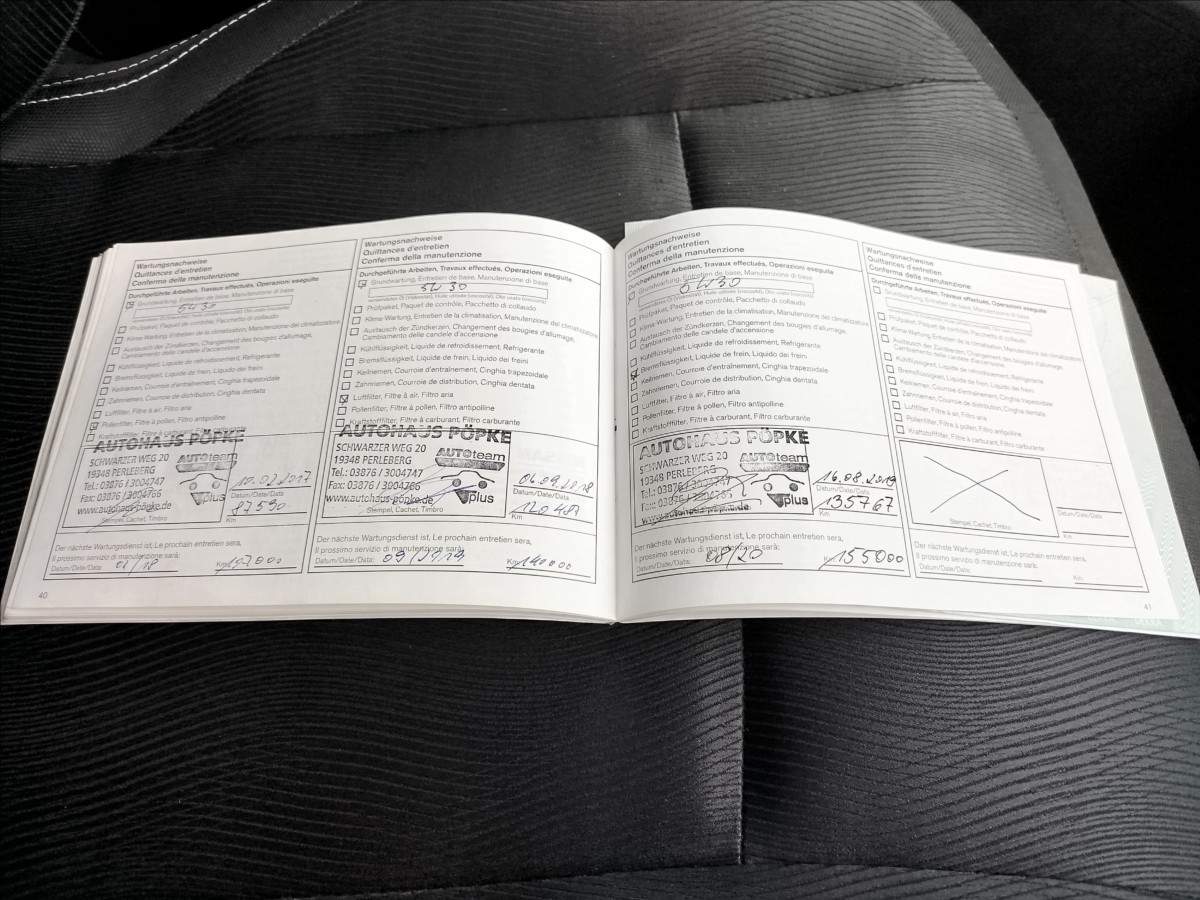 Wartungsnachweise
Quittances d'entretien
Conferma della manutenzione
Durchgeführte Arbeiten, Travaux effectués, Operazioni eseguite
Grundwartung, Entretien de base, Manutenzione di base
5W30
Prüfpaket, Paquet de contrôle, Pacchetto di collaudo
Klima-Wartung, Entretien de la climatisation, Manutenzione del climatizzatore
Austausch der Zündkerzen, Changement des bougies d'allumage,
Cambiamento delle candele d'accensione
Kühlflüssigkeit, Liquide de refroidissement, Refrigerante
Bremsflüssigkeit, Liquide de frein, Liquido dei freini
Keilriemen, Courroie d'entraînement, Cinghia trapezoidale
Zahnriemen, Courroie de distribution, Cinghia dentata
Luftfilter, Filtre à air, Filtro aria
Pollenfilter, Filtre à pollen, Filtro antipolline
AUTOHAUS PÖPKE
SCHWARZER WEG 20
19348 PERLEBERG
Tel.: 03876 / 3004747
Fax: 03876 / 3004766
www.autohaus-pöpke.de
AUTOteam
plus
Stempel, Cachet, Timbro
10.02.2017
Datum/Date/Data
87590
Km
Der nächste Wartungsdienst ist, Le prochain entretien sera,
Il prossimo servizio di manutenzione sarà:
Datum/Date/Data: 01/18
Km 107000
40
Wartungsnachweise
Quittances d'entretien
Conferma della manutenzione
Durchgeführte Arbeiten, Travaux effectués, Operazioni eseguite
Grundwartung, Entretien de base, Manutenzione di base
5W30
Prüfpaket, Paquet de contrôle, Pacchetto di collaudo
Klima-Wartung, Entretien de la climatisation, Manutenzione del climatizzatore
Austausch der Zündkerzen, Changement des bougies d'allumage,
Cambiamento delle candele d'accensione
Kühlflüssigkeit, Liquide de refroidissement, Refrigerante
Bremsflüssigkeit, Liquide de frein, Liquido dei freini
Keilriemen, Courroie d'entraînement, Cinghia trapezoidale
Zahnriemen, Courroie de distribution, Cinghia dentata
Luftfilter, Filtre à air, Filtro aria
Pollenfilter, Filtre à pollen, Filtro antipolline
Kraftstofffilter, Filtre à carburant, Filtro carburante
AUTOHAUS PÖPKE
SCHWARZER WEG 20
19348 PERLEBERG
Tel.: 03876 / 3004747
Fax: 03876 / 3004766
www.autohaus-pöpke.de
AUTOteam
plus
Stempel, Cachet, Timbro
Datum/Date/Data
Km
Der nächste Wartungsdienst ist, Le prochain entretien sera,
Il prossimo servizio di manutenzione sarà:
Datum/Date/Data:
Km 140000
Wartungsnachweise
Quittances d'entretien
Conferma della manutenzione
Durchgeführte Arbeiten, Travaux effectués, Operazioni eseguite
Grundwartung, Entretien de base, Manutenzione di base
5W30
Prüfpaket, Paquet de contrôle, Pacchetto di collaudo
Klima-Wartung, Entretien de la climatisation, Manutenzione del climatizzatore
Austausch der Zündkerzen, Changement des bougies d'allumage,
Cambiamento delle candele d'accensione
Kühlflüssigkeit, Liquide de refroidissement, Refrigerante
Bremsflüssigkeit, Liquide de frein, Liquido dei freini
Keilriemen, Courroie d'entraînement, Cinghia trapezoidale
Zahnriemen, Courroie de distribution, Cinghia dentata
Luftfilter, Filtre à air, Filtro aria
Pollenfilter, Filtre à pollen, Filtro antipolline
Kraftstofffilter, Filtre à carburant, Filtro carburante
AUTOHAUS PÖPKE
SCHWARZER WEG 20
19348 PERLEBERG
Tel.: 03876 / 3004747
Fax: 03876 / 3004766
www.autohaus-pöpke.de
AUTOteam
plus
16.08.2019
Datum/Date/Data
135767
Km
Der nächste Wartungsdienst ist, Le prochain entretien sera,
Il prossimo servizio di manutenzione sarà:
Datum/Date/Data: 08/20
Km 155000
Wartungsnachweise
Quittances d'entretien
Conferma della manutenzione
Durchgeführte Arbeiten, Travaux effectués, Operazioni eseguite
Grundwartung, Entretien de base, Manutenzione di base
Prüfpaket, Paquet de contrôle, Pacchetto di collaudo
Klima-Wartung, Entretien de la climatisation, Manutenzione del climatizzatore
Austausch der Zündkerzen, Changement des bougies d'allumage,
Cambiamento delle candele d'accensione
Kühlflüssigkeit, Liquide de refroidissement, Refrigerante
Bremsflüssigkeit, Liquide de frein, Liquido dei freini
Keilriemen, Courroie d'entraînement, Cinghia trapezoidale
Zahnriemen, Courroie de distribution, Cinghia dentata
Luftfilter, Filtre à air, Filtro aria
Pollenfilter, Filtre à pollen, Filtro antipolline
Kraftstofffilter, Filtre à carburant, Filtro carburante
Stempel, Cachet, Timbro
Datum/Date/Data
Km
Der nächste Wartungsdienst ist, Le prochain entretien sera,
Il prossimo servizio di manutenzione sarà:
Datum/Date/Data:
Km
41